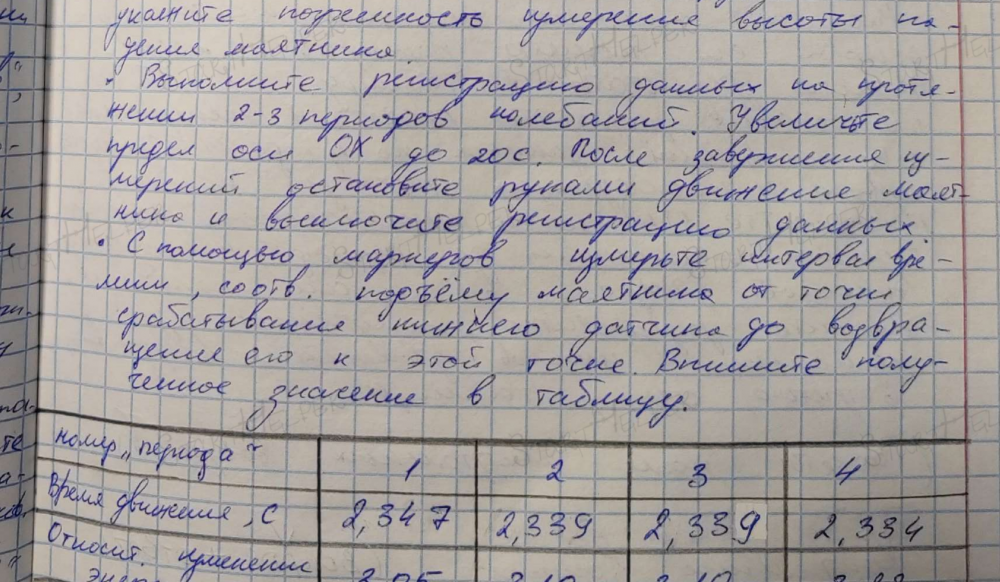 укажите погрешность измерения высоты па-
дения маятника.
• Выполните регистрацию данных на протя-
жении 2-3 периодов колебаний. Увеличьте
предел оси ОХ до 20с. После завершения из-
мерений остановите руками движение маят-
ника и выключите регистрацию данных.
• С помощью маркеров измерьте интервал вре-
мени, соотв. подъёму маятника от точки
срабатывания нижнего датчика до возвра-
щение его к этой точке. Впишите полу-
ченное значение в таблицу.
номер „периода" 1 2 3 4
Время движения, с 2,347 2,339 2,339 2,334
Относит. изменение